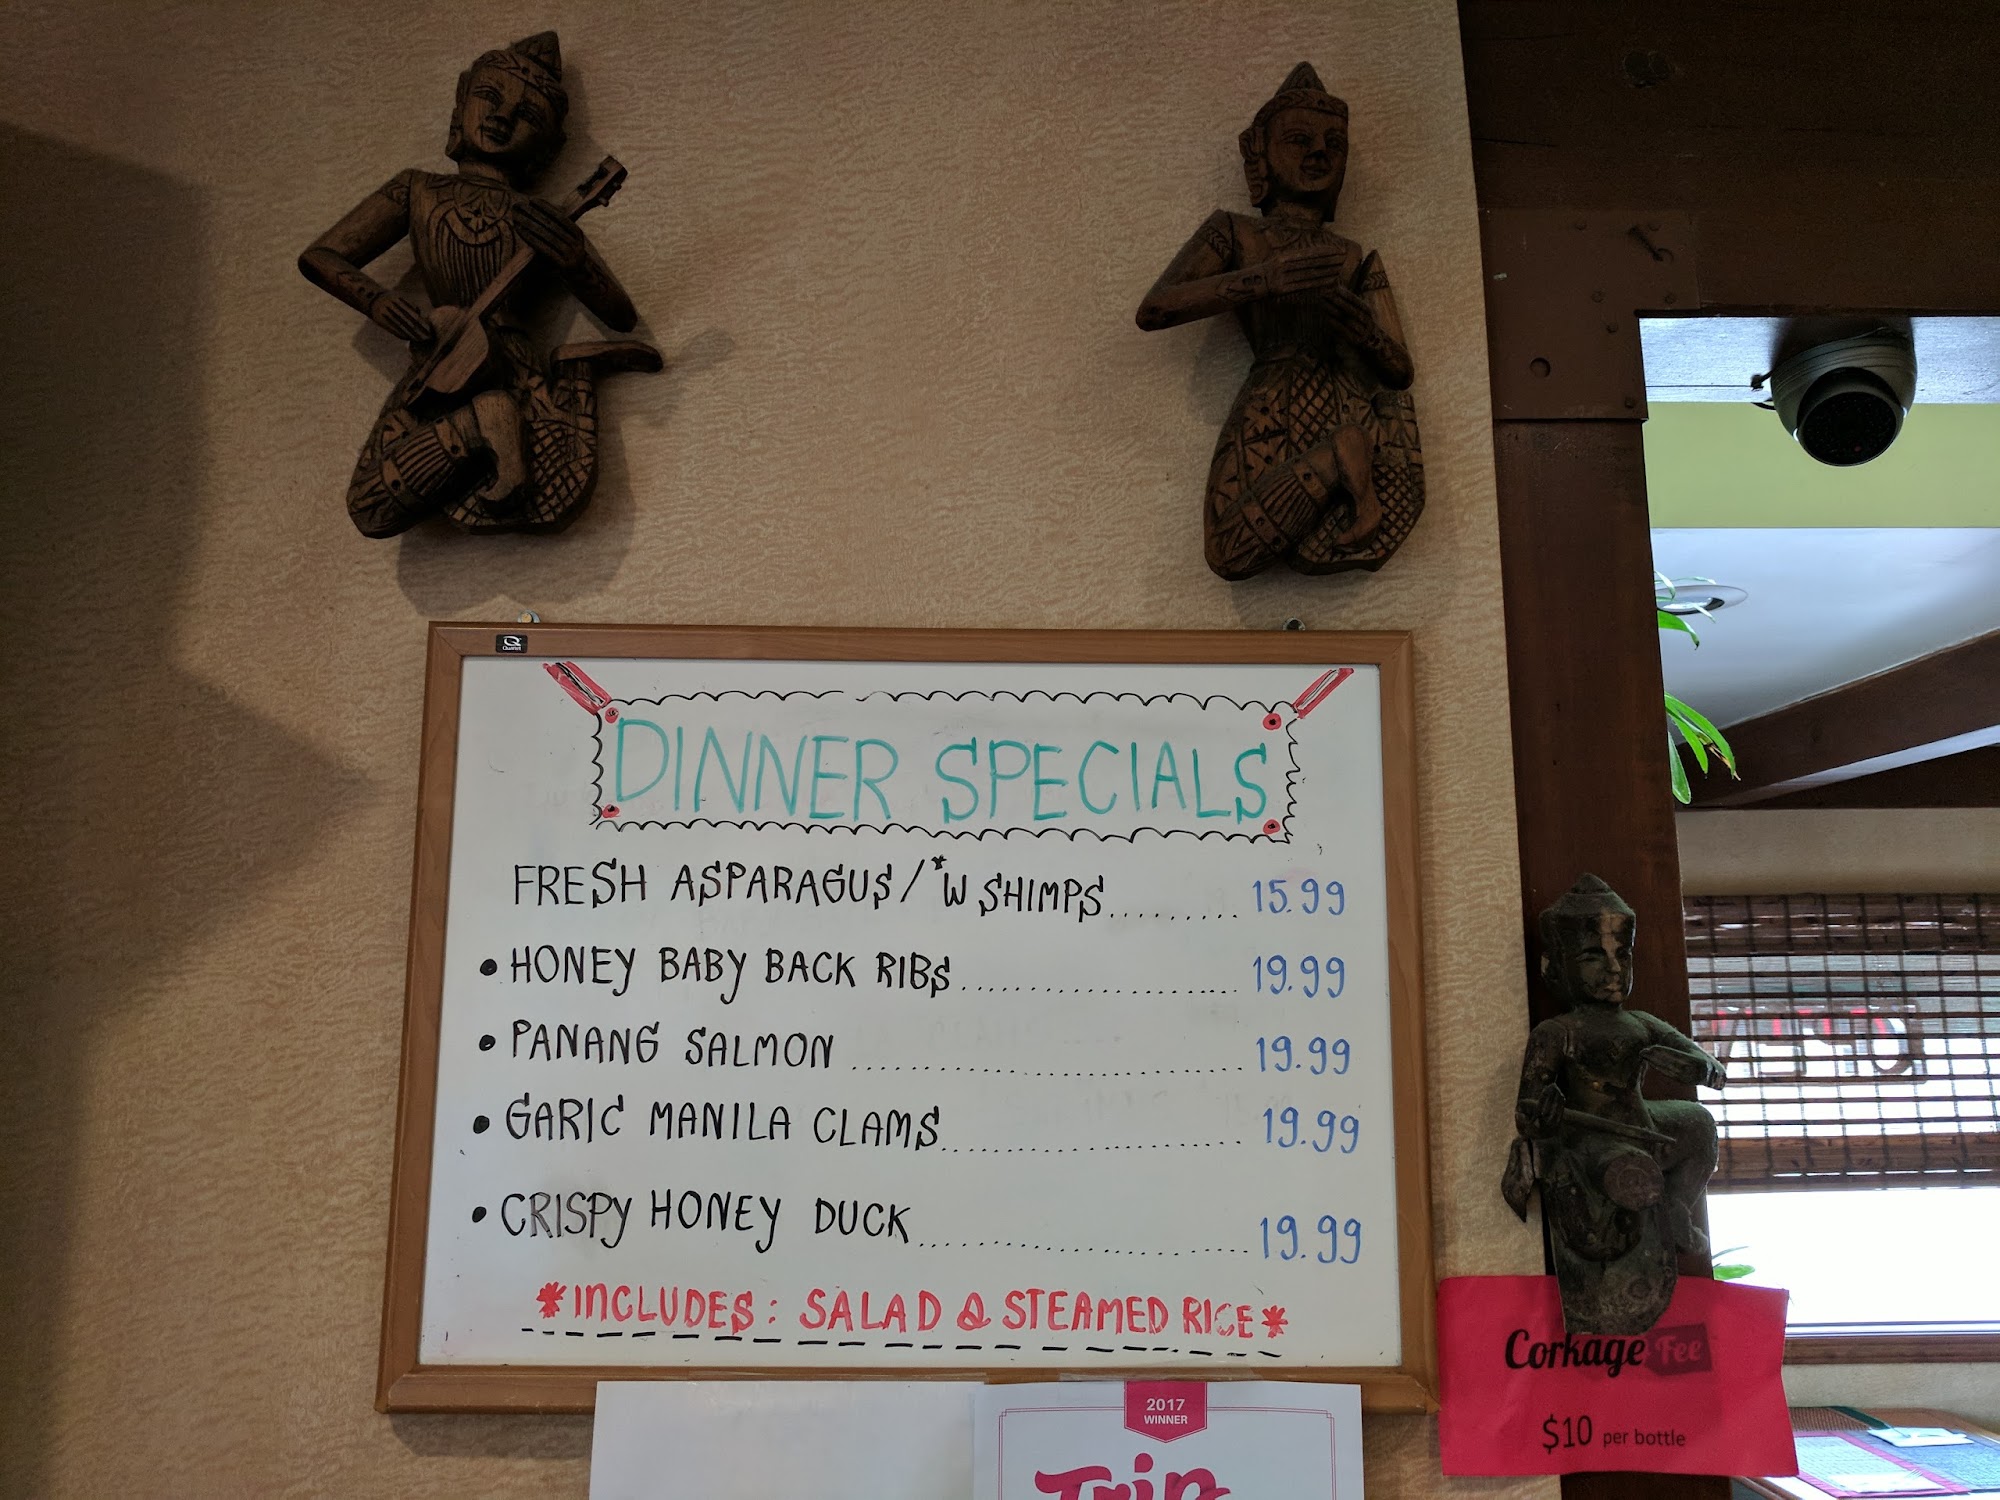 Quartet
DINNER SPECIALS
FRESH ASPARAGUS / *W SHIMPS.......... 15.99
• HONEY BABY BACK RIBS..................... 19.99
• PANANG SALMON.............................. 19.99
• GARIC MANILA CLAMS........................ 19.99
• CRISPY HONEY DUCK......................... 19.99
*INCLUDES: SALAD & STEAMED RICE*
2017
WINNER
Trip
Corkage Fee
$10 per bottle
OPEN